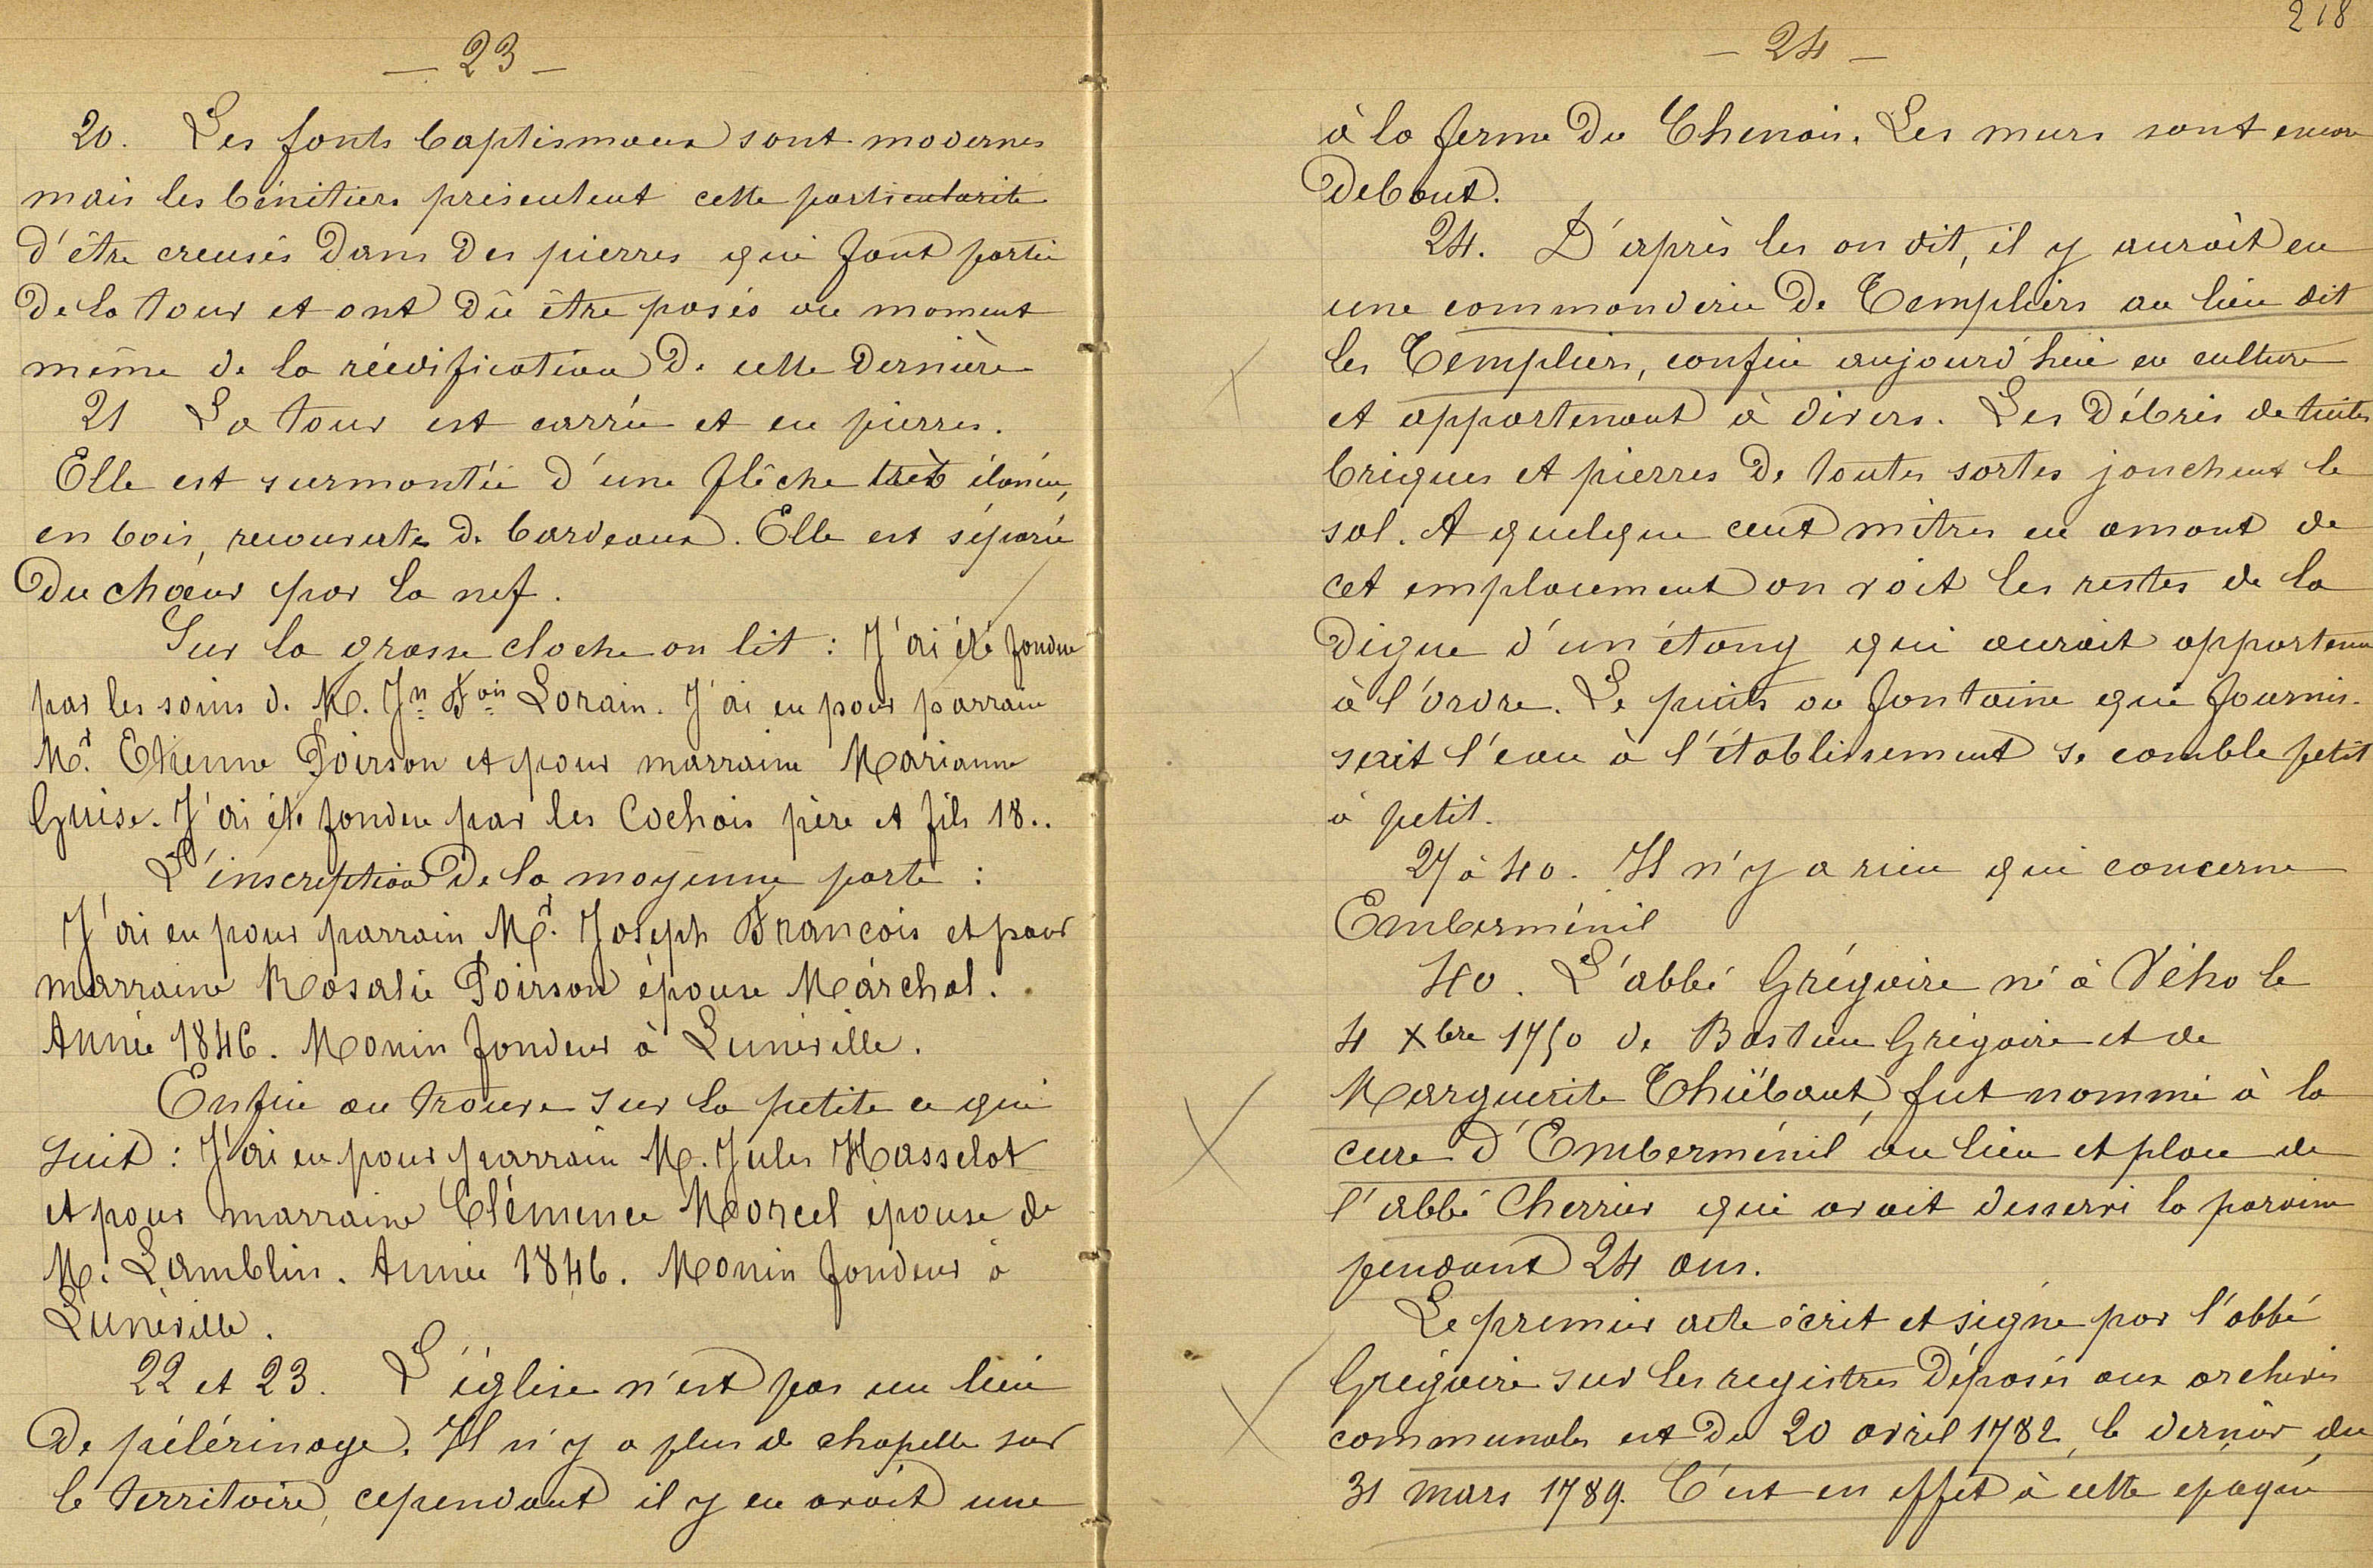 — 23 —
20. Les fonts baptismaux sont modernes
mais les bénitiers présentent cette particularité
d'être creusés dans des pierres qui font partie
de la tour et ont dû être posés au moment
même de la réédification de cette dernière
21 La tour est carrée et en pierres.
Elle est surmontée d'une flêche très élancée,
en bois, recouverte de bardeaux. Elle est séparée
du chœur par la nef.
Sur la grosse cloche on lit : J'ai été fondue
par les soins de M. Jn Fois Lorain. J'ai eu pour parrain
Mr. Etienne Poirson et pour marraine Marianne
Guise. J'ai été fondue par les Cochois père et fils 18..
L'inscription de la moyenne porte :
J'ai eu pour parrain Mr. Joseph Francois et pour
marraine Rosalie Poirson épouse Marchal.
Année 1846. Monin fondeur à Lunéville.
Enfin on trouve sur la petite ce qui
suit : J'ai eu pour parrain M. Jules Masselot
et pour marraine Clémence Marcel épouse de
M. Lamblin. Année 1846. Monin fondeur à
Lunéville.
22 et 23. L'église n'est pas un lieu
de pélérinage. Il n'y a plus de chapelle sur
le territoire, cependant il y en avait une
218
— 24 —
à la ferme du Chenois. Les murs sont encore
debout.
24. D'après les on dit, il y aurait eu
une commanderie de Templiers au lieu dit
les Templiers, confin aujourd'hui en culture
et appartenant à divers. Les débris de tuiles
briques et pierres de toutes sortes jonchent le
sol. A quelque cent mètres en amont de
cet emplacement on voit les restes de la
digue d'un étang qui aurait appartenu
à l'ordre. Le puits ou fontaine qui fournis-
sait l'eau à l'établissement se comble petit
à petit.
27 à 40. Il n'y a rien qui concerne
Emberménil
40. L'abbé Grégoire né à Vého le
4 Xbre 1750 de Bastien Grégoire et de
Marguerite Thiébaut, fut nommé à la
cure d'Emberménil au lieu et place de
l'abbé Cherrier qui avait desservi la paroisse
pendant 24 ans.
Le premier acte écrit et signé par l'abbé
Grégoire sur les registres déposés aux archives
communales est du 20 avril 1782, le dernier du
31 mars 1789. C'est en effet à cette époque